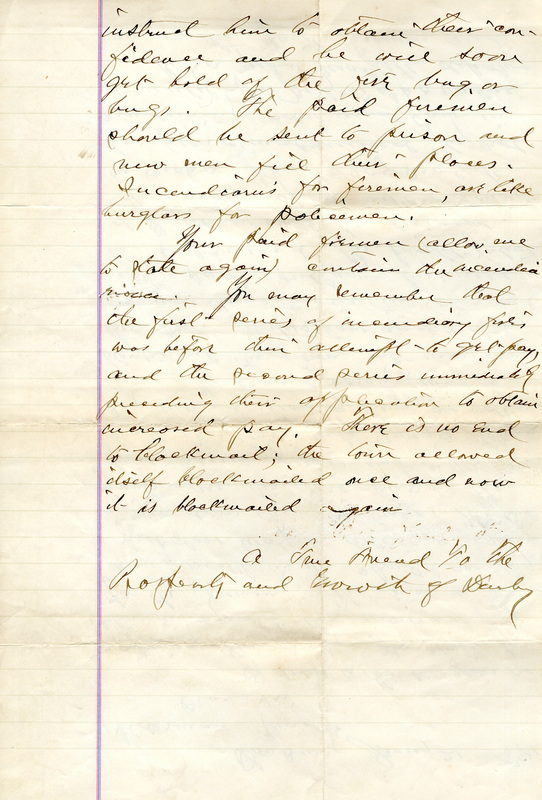 instruct him to obtain their con-
fidence and he will soon
get hold of the fire bug or
bugs. The paid firemen
should be sent to prison and
new men fill their places.
Incendiaries for firemen, are like
burglars for policemen.
Your paid firemen (allow me
to state again) contain the incendia
. You may remember that
the first series of incendiary fires
was before their attempt to get pay,
and the second series immediately
preceding their application to obtain
increased pay. There is no end
to blackmail; the town allowed
itself blackmailed once and now
it is blackmailed again
A True Friend To The
Prosperity and Growth of